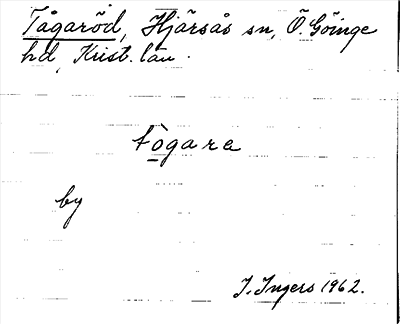 Tågaröd, Hjärsås sn, Ö. Göinge
hd, Krist. län.
tògara
by
I. Ingers 1962.